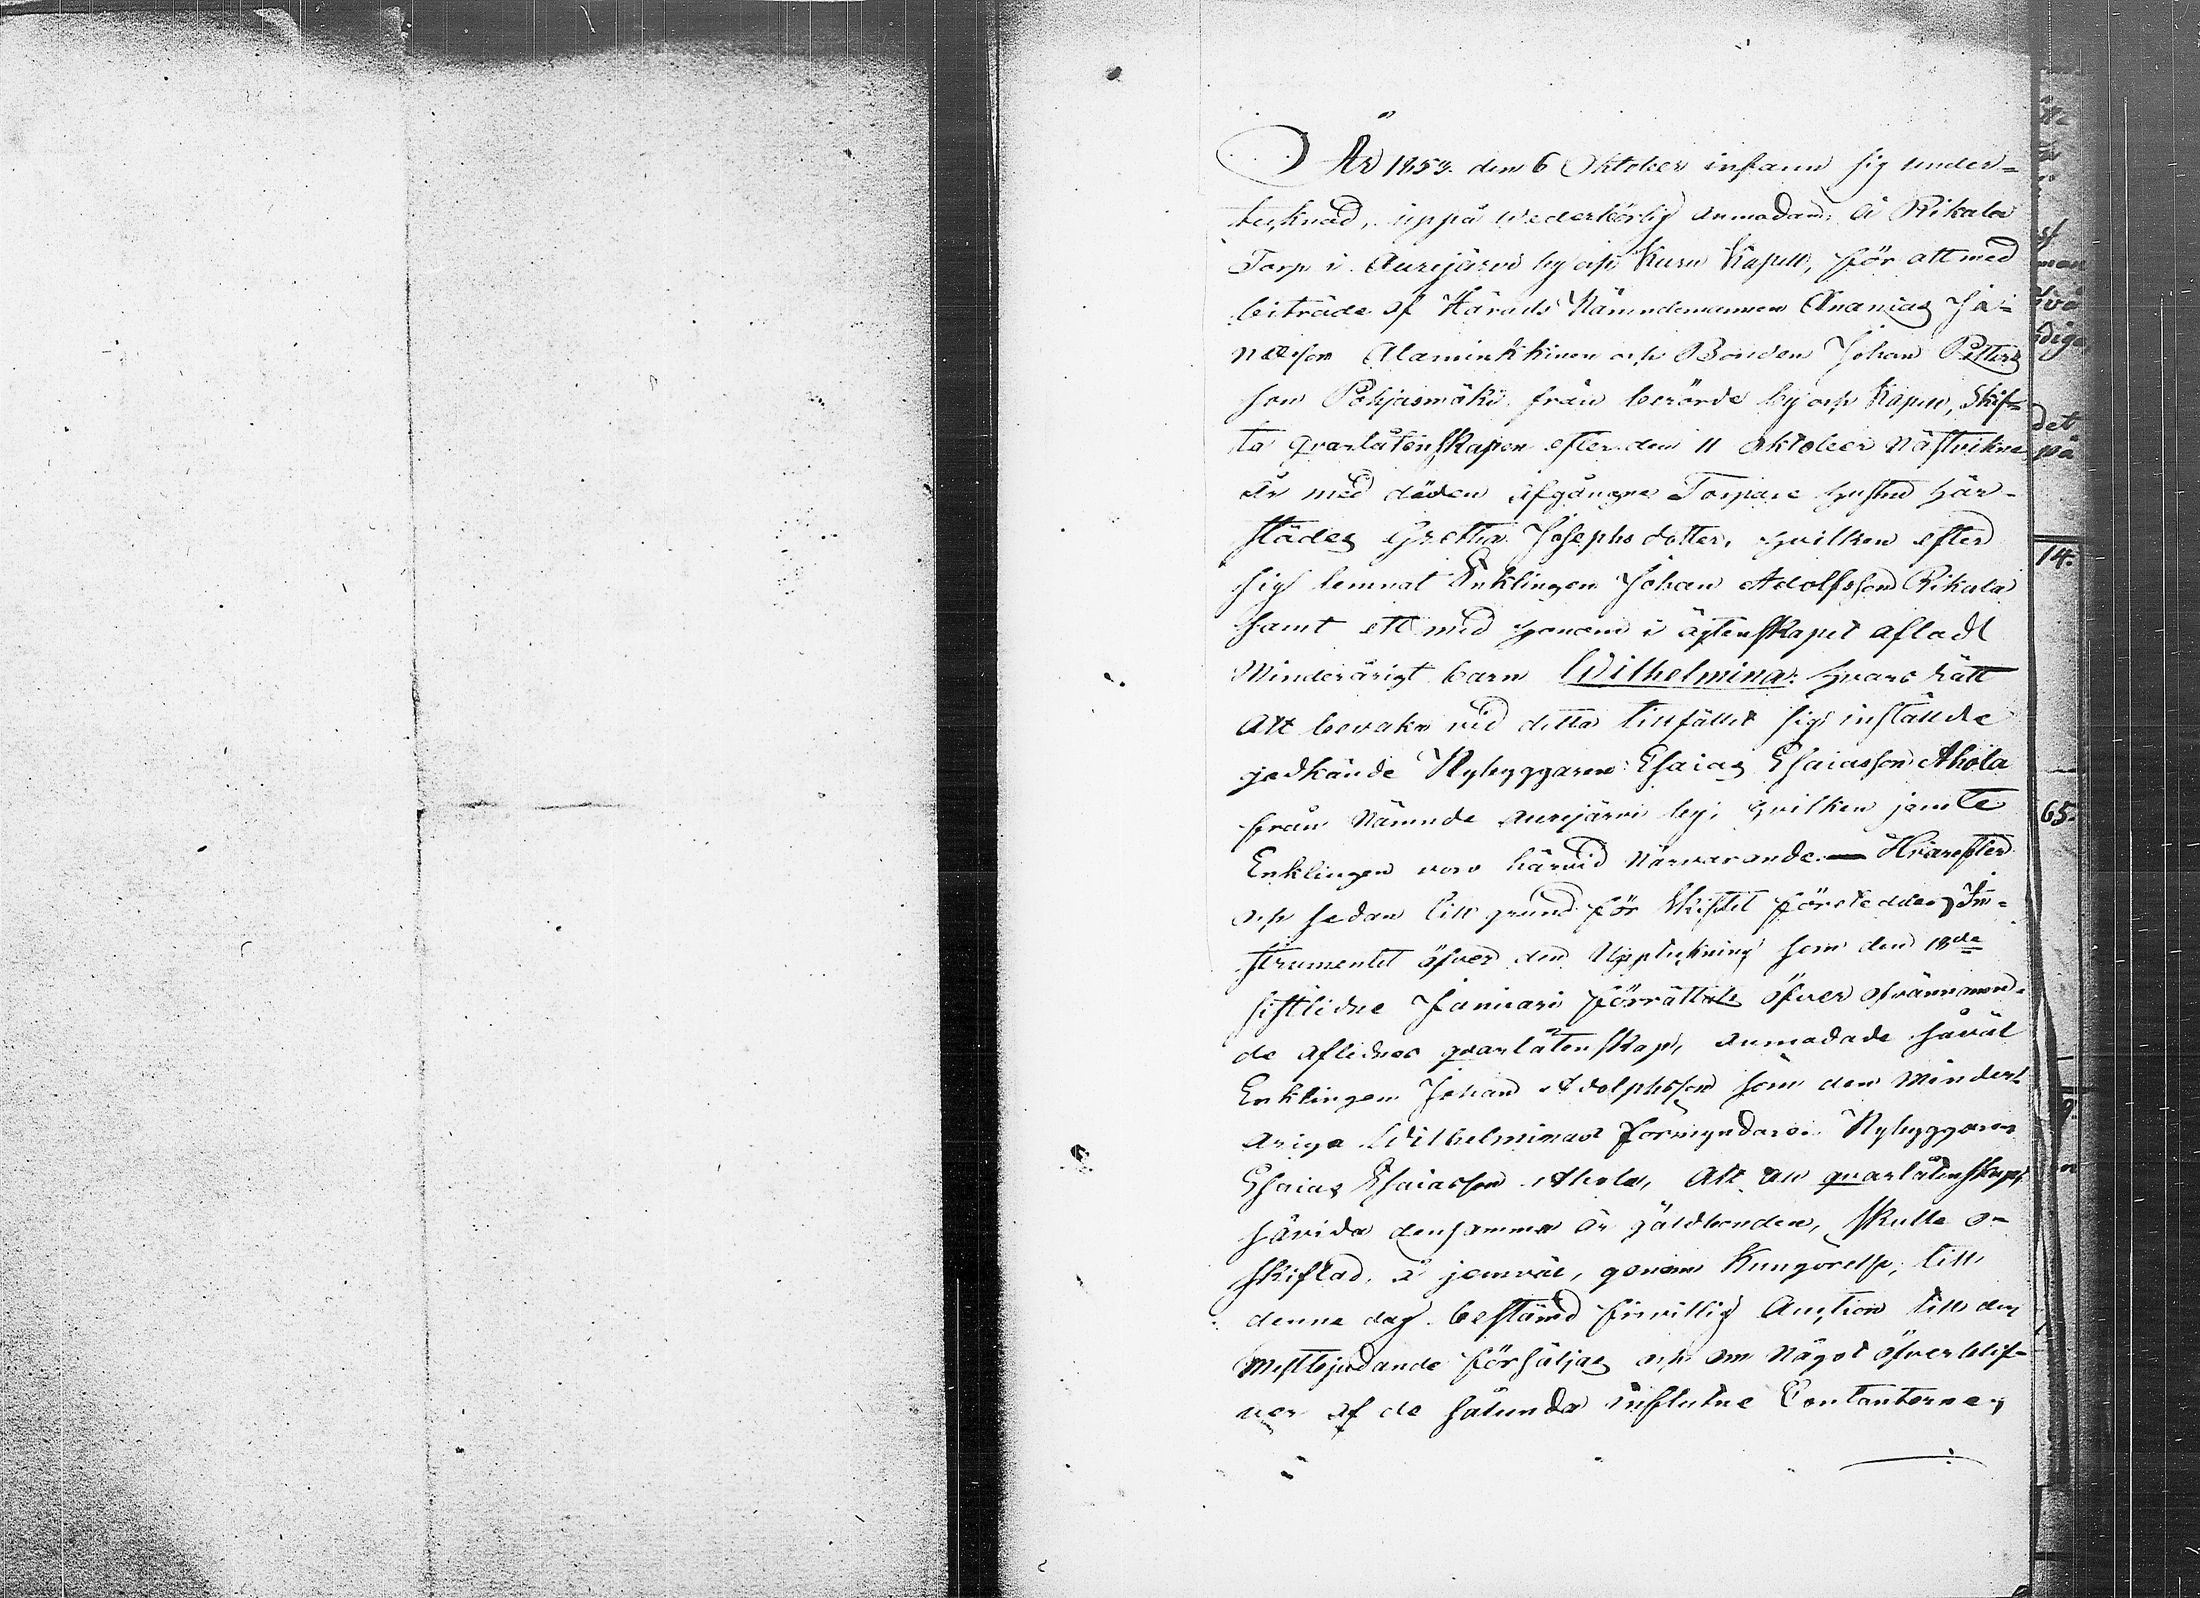 År 1853. den 6 Oktober infann sig under-
tecknad, uppå wederbörlig anmodan, å Rikala
Torp i Aurejärvi by och Kuru Kapell, för att med
biträde af Härads Nämndemannen Ananias
Alaminkkinen och Bonden Johan Petters
son Pohjasmäki från berörde by och Kapell, skif-
ta qvarlåtenskapen efter den 11 Oktober nästvikne
år med döden afgångne Torpare hustru här-
städes Gretha Josephsdotter, hvilken efter
sig lemnat Enklingen Johan Adolfsson Rikala
samt ett med honom i ägtenskapet afladt
Minderårigt barn Wilhelmina: hvars rätt
att bevaka vid detta tillfället sig inställde
godkände Nybyggaren Esaias Esaiasson Ahola
från Nämnde Aurejärvi by; hvilken jemte
Enklingen voro härvid Närvarande. — Hvarefter
och sedan till grund för Skiftet företeddes In-
strumentet öfver den Uppteckning som den 18de
sistlidne Januari förrättats öfver ofvannämn-
de aflidnes qvarlåtenskap, anmodade såväl
Enklingen Johan Adolphsson som den Minder-
åriga Wilhelminas Förmyndare Nybyggaren
Esaias Esaiasson Ahola, Att all qvarlåtenskap,
såvida densamma är gäldbunden, skulle o-
skiftad, å jemväl, genom Kungörelse, till
denne dag bestämd frivillig Auction till den
Mestbjudande försäljas och om Något öfverblif-
ver af de sålunda influtne Contanterne,
det
på
14.
65.